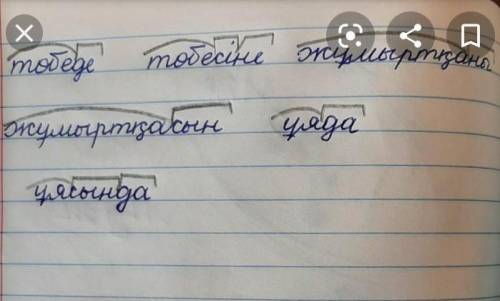 тобеде тобесіне жұмыртқаны
жұмыртқасын ұяда
ұясында